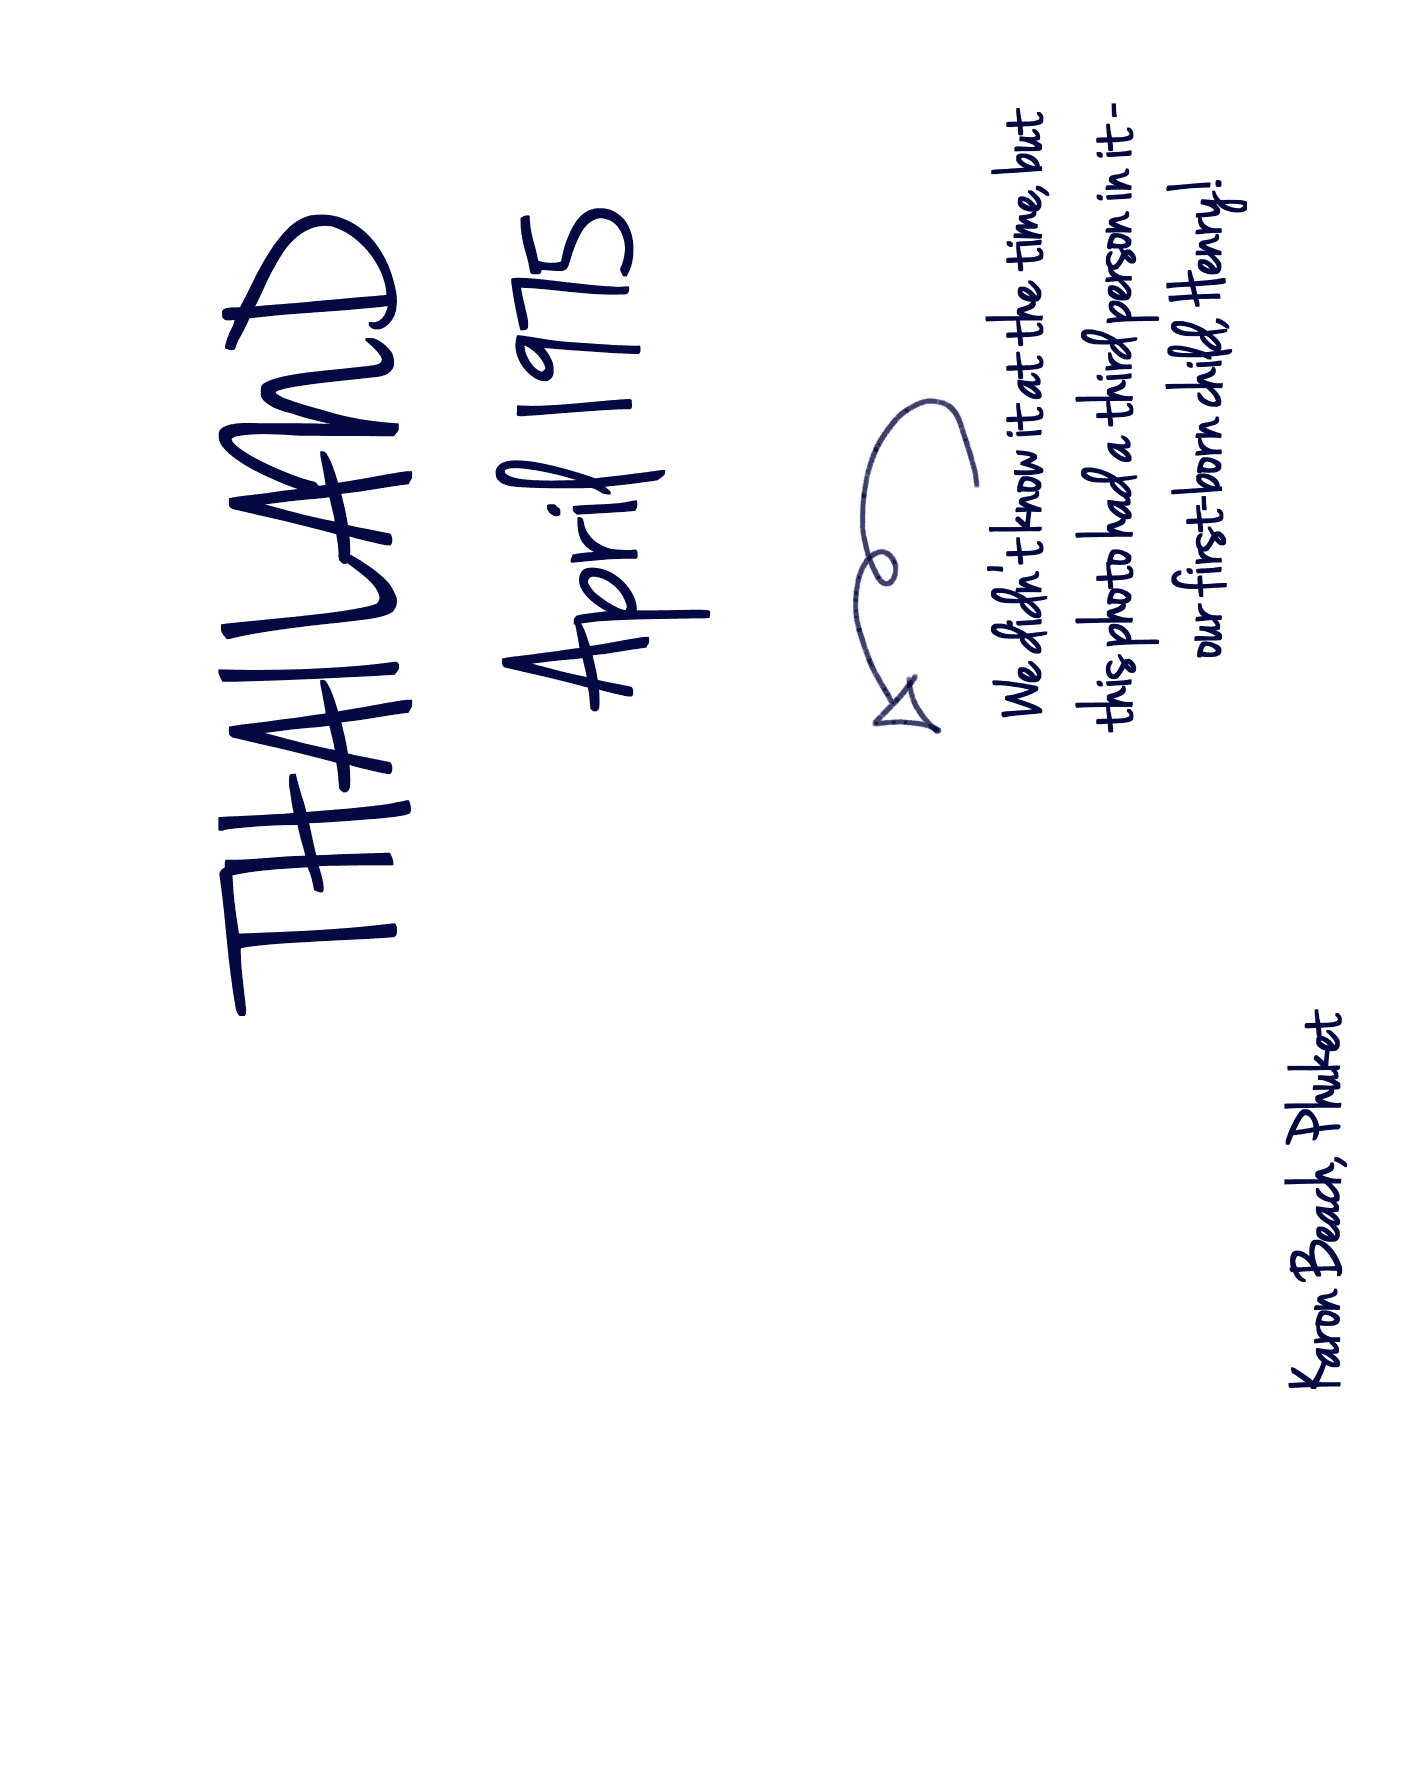 THAILAND
April 1975
We didn't know it at the time, but
this photo had a third person in it -
our first-born child, Henry!
Karon Beach, Phuket